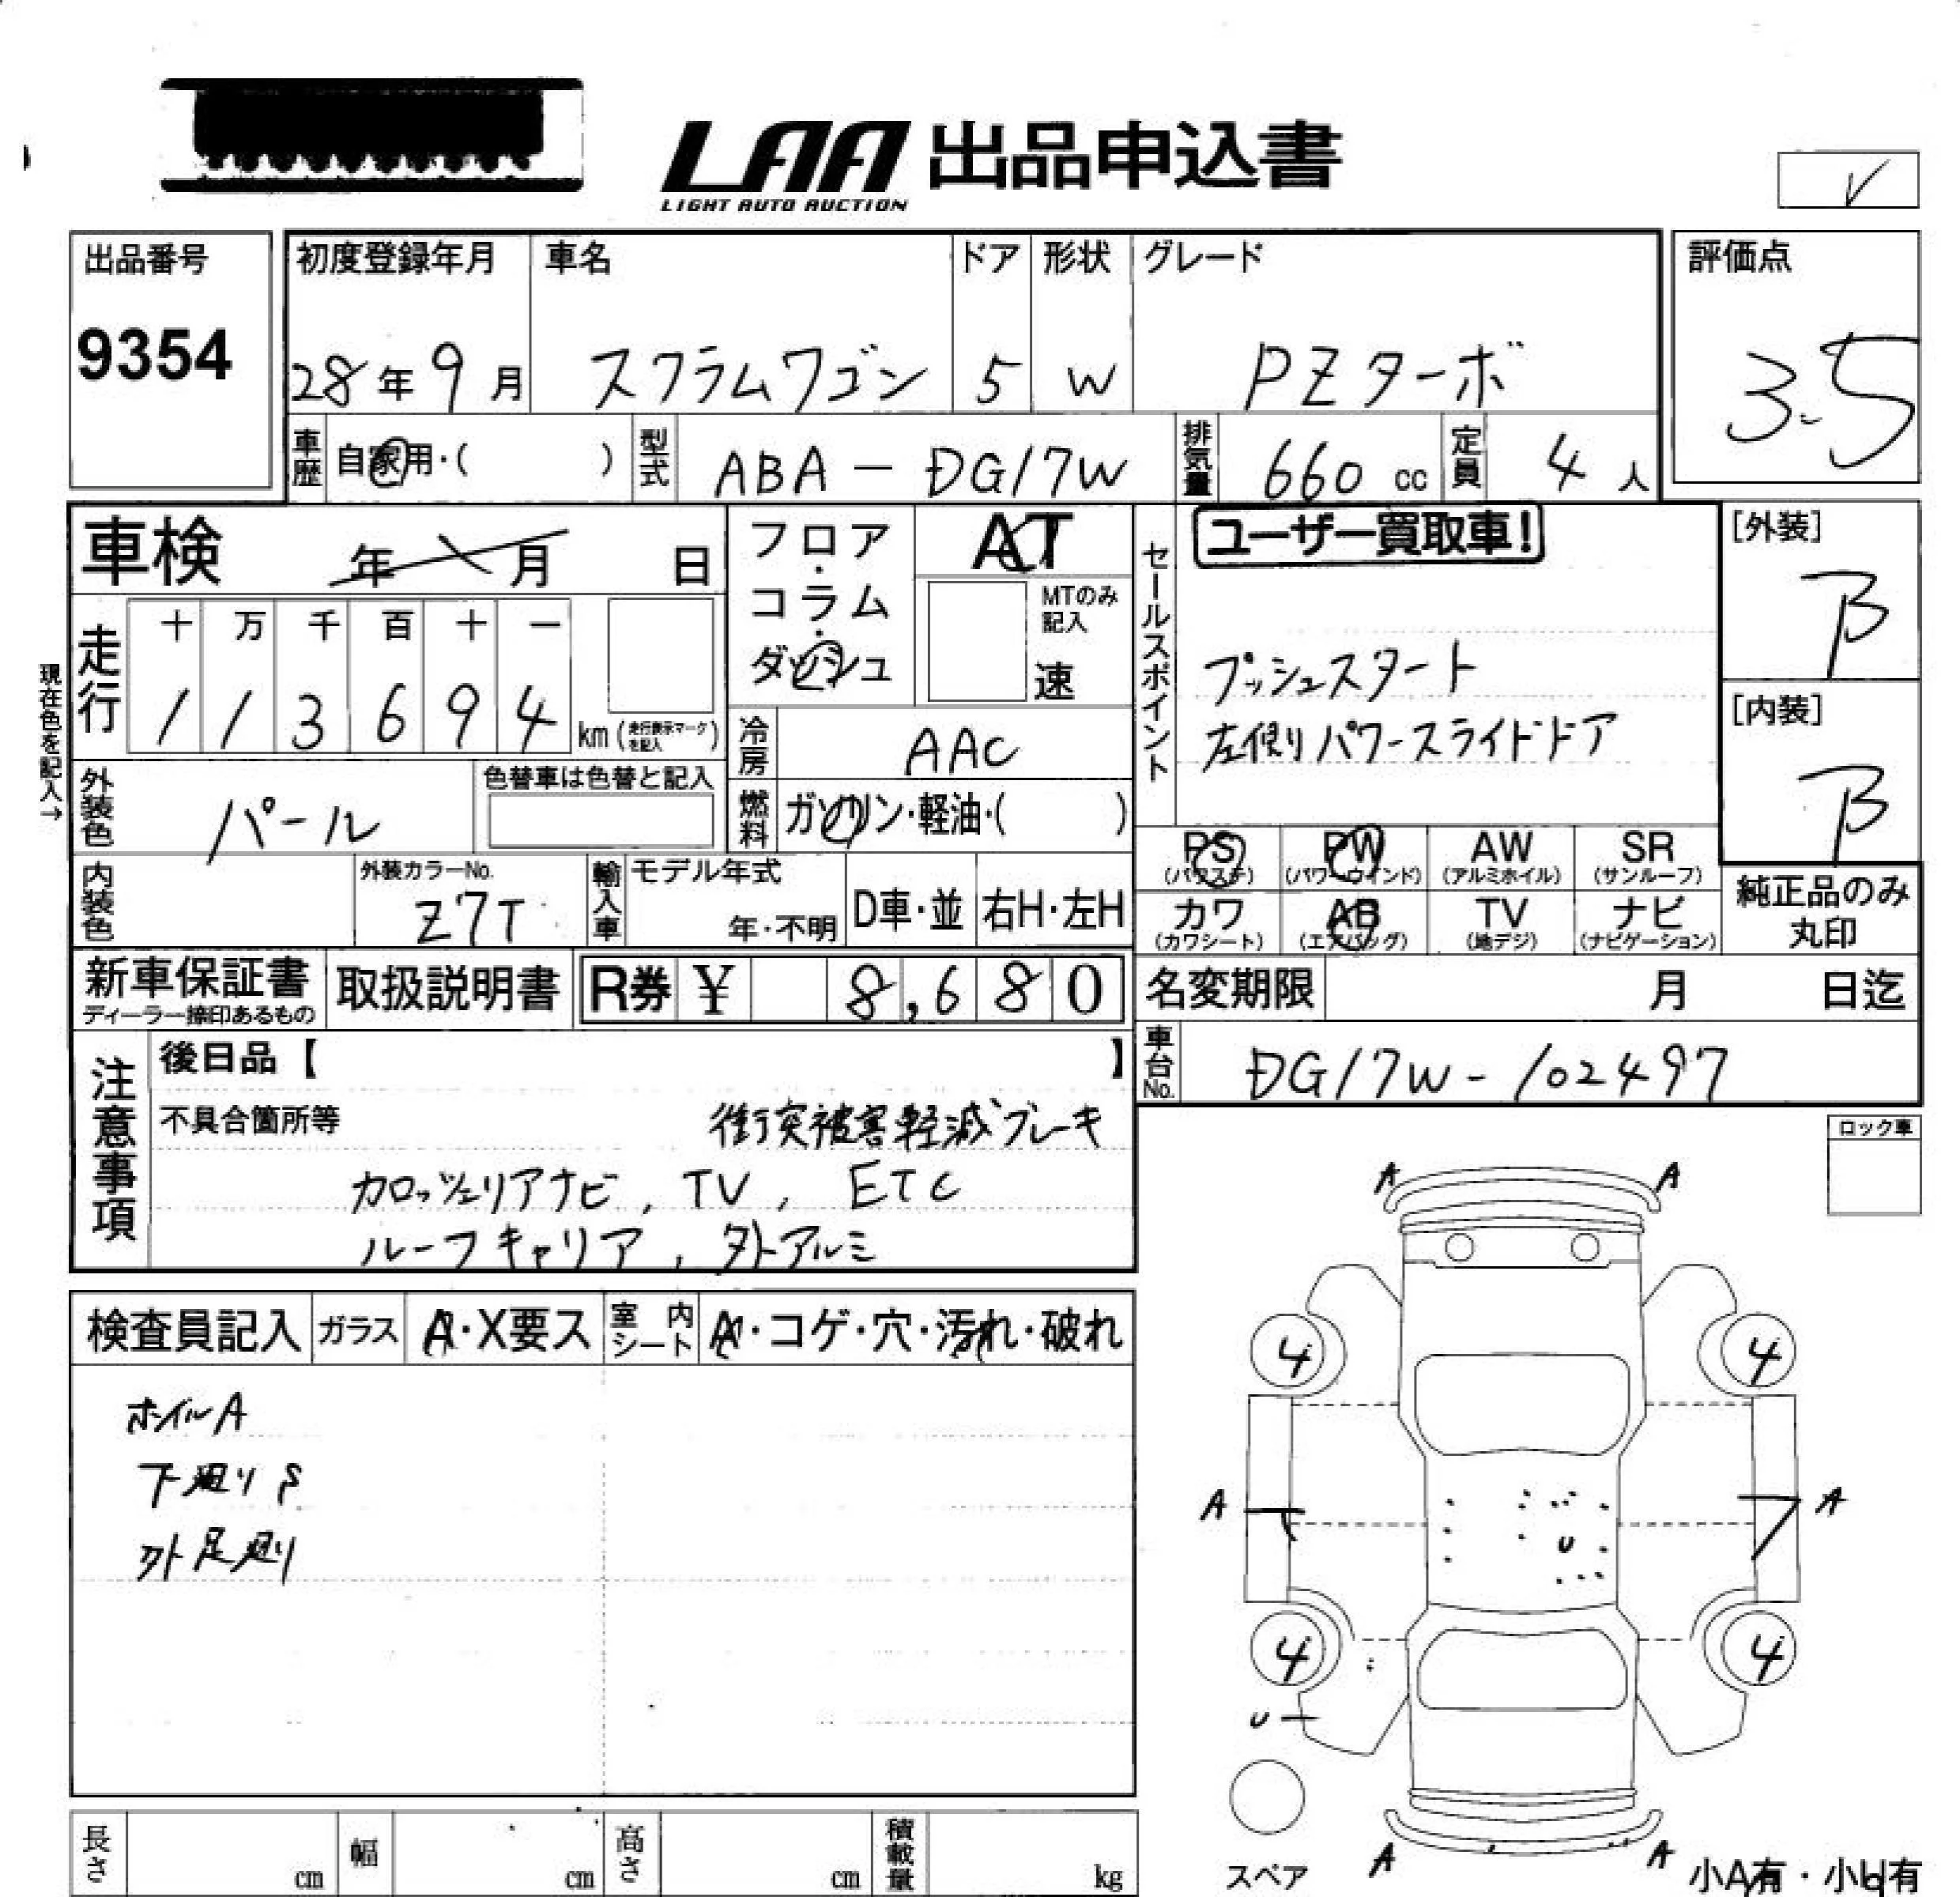 LAA 出品申込書
LIGHT AUTO AUCTION
出品番号
9354
初度登録年月
28年9月
車名
スクラムワゴン
ドア
5
形状
W
グレード
PZターボ
評価点
3.5
車歴
自家用・( )
型式
ABA-DG17W
排気量
660 cc
定員
4 人
車検 年 月 日
走行
十 万 千 百 十 一
1 1 3 6 9 4
km(走行表示マークを記入)
現在色を記入→
外装色
パール
色替車は色替と記入
内装色
外装カラーNo.
Z7T
輸入車
モデル年式
年・不明
D車・並
右H・左H
フロア・コラム・ダッシュ
AT
MTのみ記入
速
冷房
AAC
燃料
ガソリン・軽油・( )
セールスポイント
ユーザー買取車!
プッシュスタート
左側りパワースライドドア
[外装]
B
[内装]
B
PS
(パワステ)
PW
(パワーウインド)
AW
(アルミホイル)
SR
(サンルーフ)
カワ
(カワシート)
AB
(エアバッグ)
TV
(地デジ)
ナビ
(ナビゲーション)
純正品のみ
丸印
新車保証書
ディーラー捺印あるもの
取扱説明書
R券 ¥ 8,680
名変期限 月 日迄
車台No.
DG17W-102497
注意事項
後日品【 】
不具合箇所等
衝突被害軽減ブレーキ
カロッツェリアナビ, TV, ETC
ルーフキャリア, 外アルミ
ロック車
検査員記入
ガラス
A・X要ス
室内シート
A・コゲ・穴・汚れ・破れ
ホイルA
下廻りS
外足廻り
A A
4 4
A A
U
4 4
U
スペア
A A
小A有・小U有
長さ cm
幅 cm
高さ cm
積載量 kg